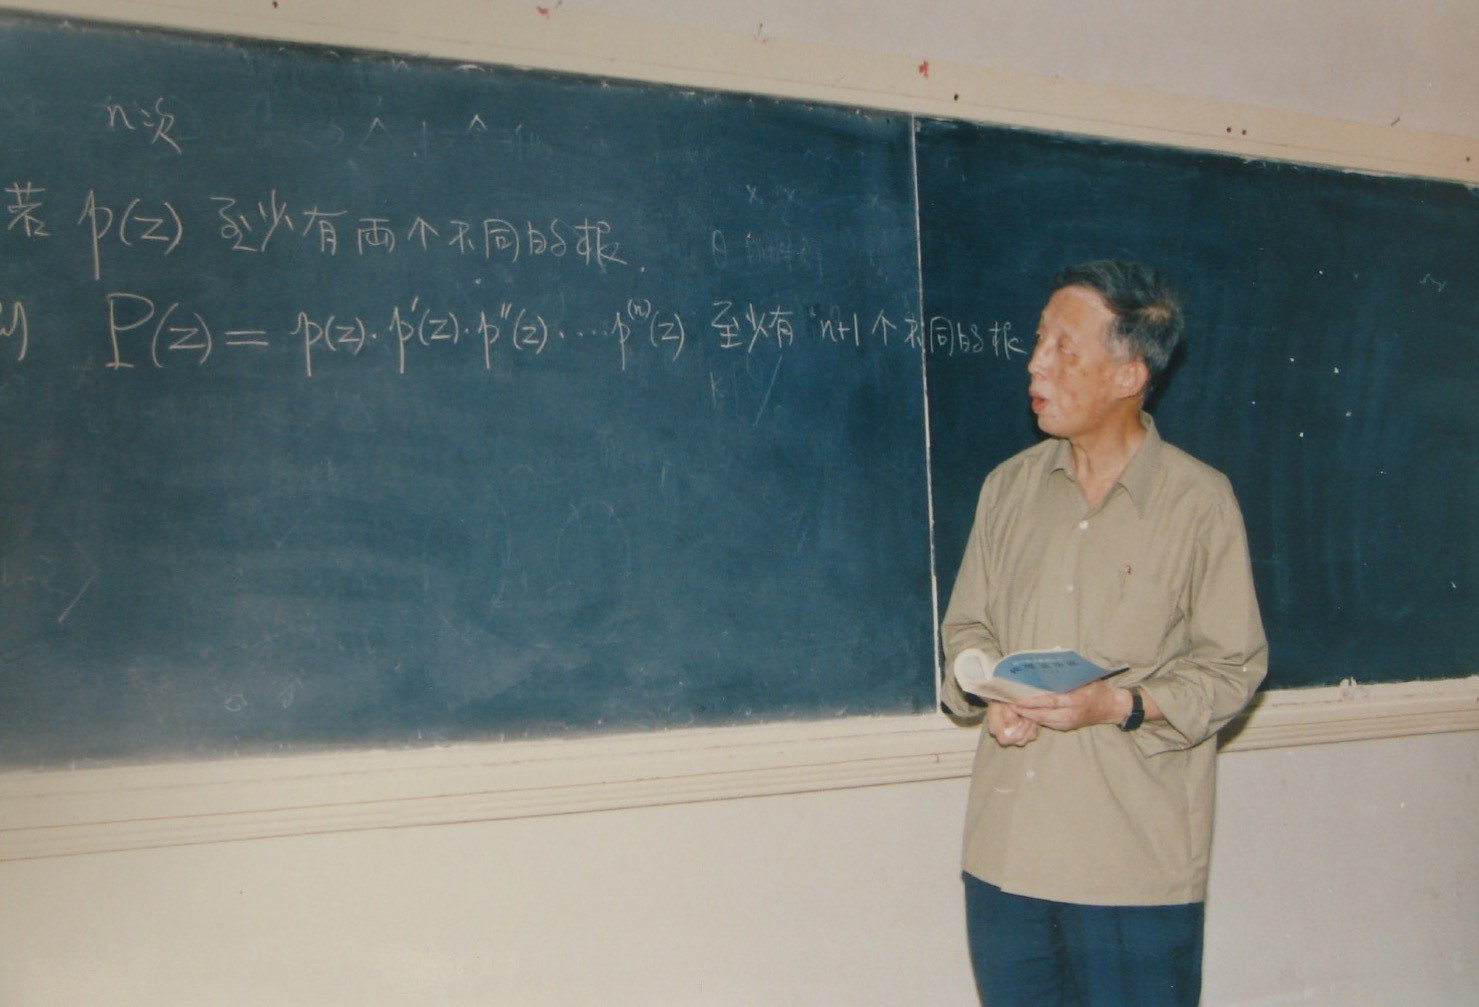 n次
若 p(z) 至少有两个不同的根.
则 P(z) = p(z)·p'(z)·p''(z)·····p⁽ⁿ⁾(z) 至少有 n+1 个不同的根